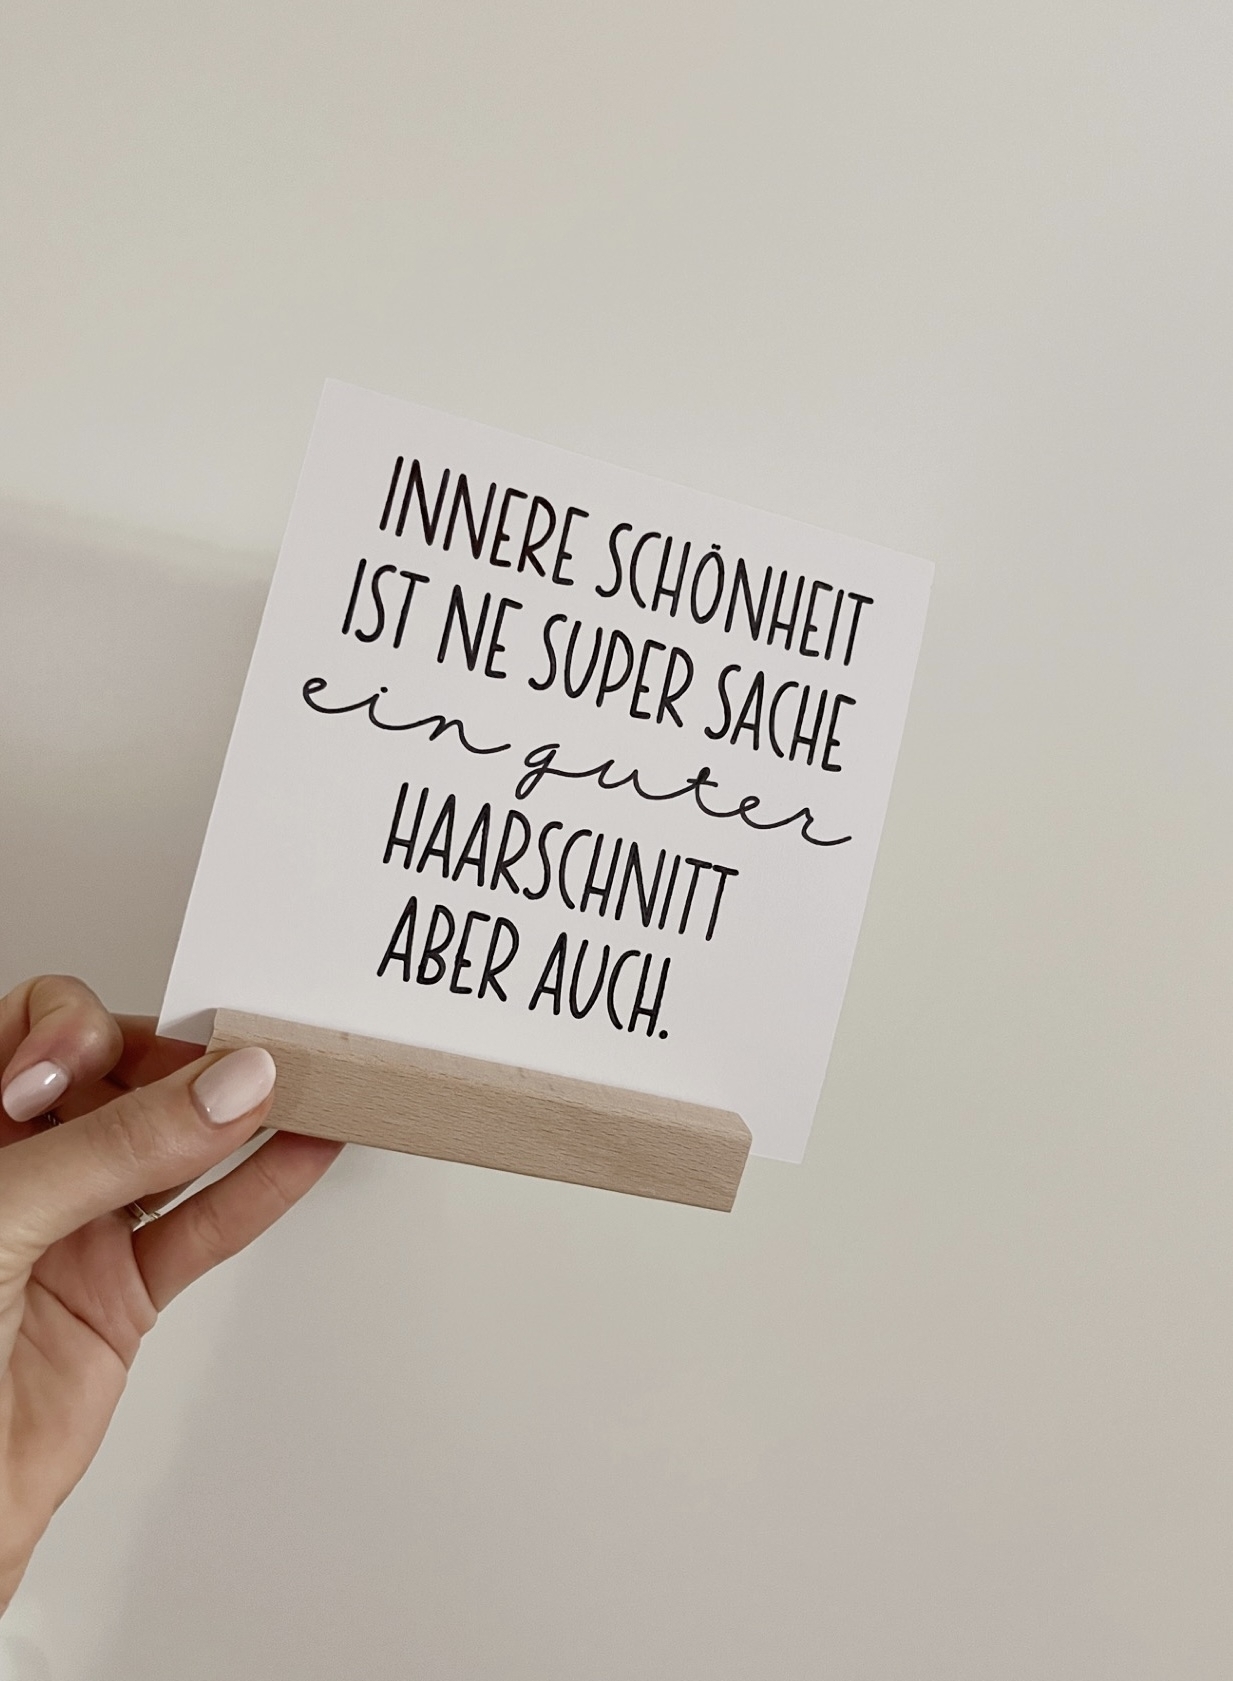 INNERE SCHÖNHEIT
IST NE SUPER SACHE
ein guter
HAARSCHNITT
ABER AUCH.